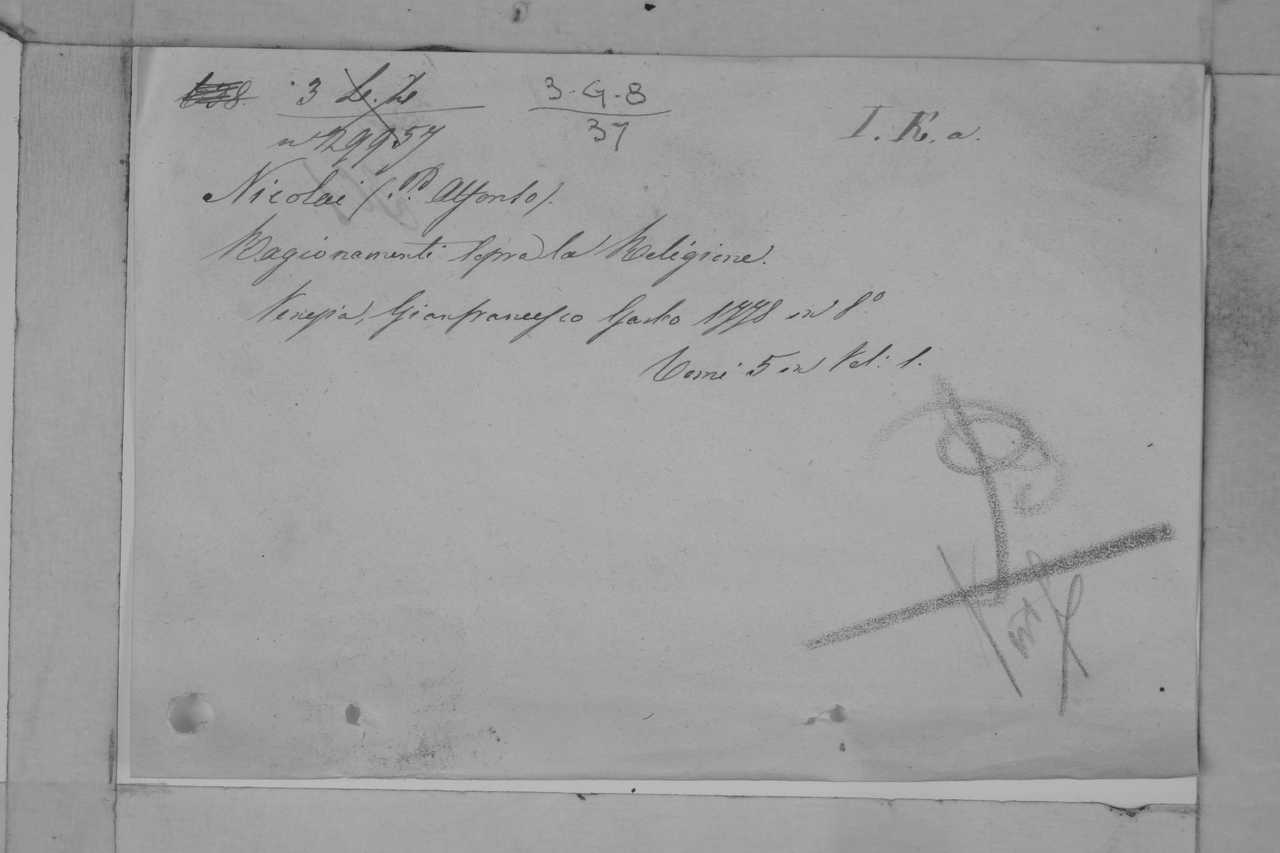 3 Le. Le 3-G-8 I. K. a.
n° 29957 37
Nicolai (P. Alfonso).
Ragionamenti sopra la Religione.
Venezia, Gianfrancesco Garbo 1778 in 8°
Tomi 5 in Vol: 1.